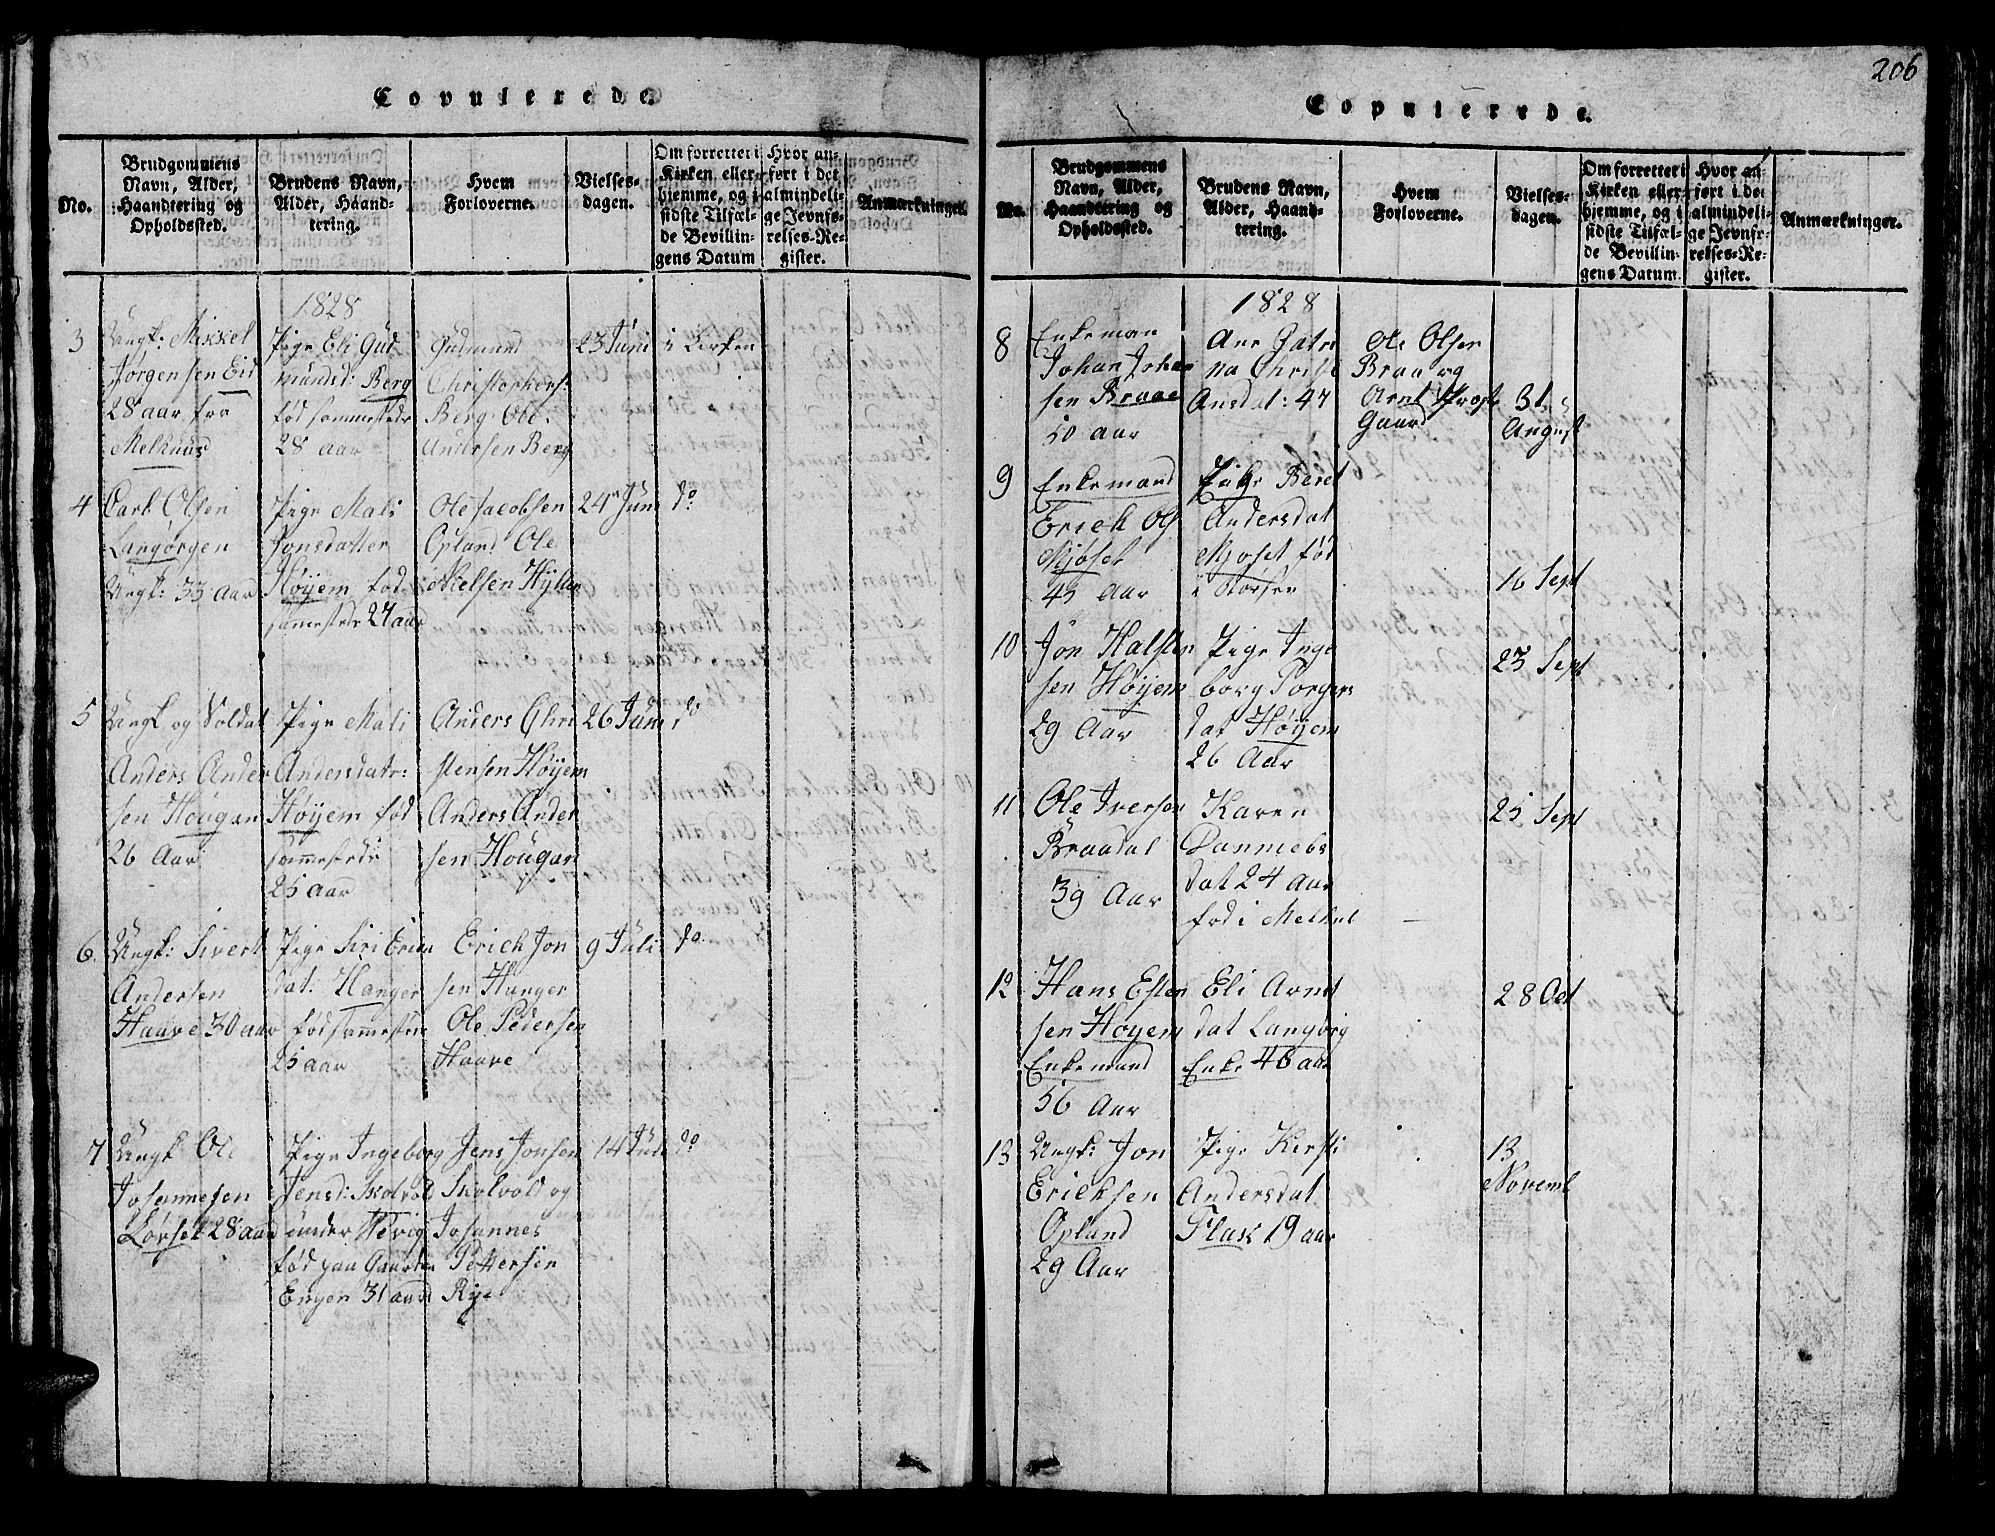 Copulerede.
No.
Brudgommens
Navn, Alder,
Haandtering og
Opholdssted.
Brudens Navn,
Alder, Haand-
tering.
Hvem
Forloverne.
Vielses-
dagen.
Om forrettet i
Kirken eller
hjemme, og i
sidste Tilfæl-
de Bevillin-
gens Datum
Hvor an-
ført i det
almindeli-
ge Jevnfø-
relses-Re-
gister.
Anmærkninger.
1828
3
Ungk: Mikkel
Jørgensen Eid
28 aar fra
Melhuus
Pige Eli Gud
mundsd: Berg
fød sammestedr
28 aar
Gudmund
Christophers:
Berg. Ole
Andersen Berg
23 Juni
i Kirken
4
Carl Olsen
Langørgen
Ungk: 33 Aar
Pige Mali
Jonsdatter
Høyem fod
samestede 27 aar
Ole Jacobsen
Opland Ole
Nielsen
24 Juni
do
5
Ungk og Soldat
Anders Ander
sen Hougan
26 Aar
Pige Mali
Andersdatr:
Høyem fød
sammestede
25 aar
Anders Chri
stensen Høyem
Anders Ander
sen Hougan
26 Juni
do
6.
Ungk: Sivert
Andersen
Haave 30 aar
Pige Siri Erics
dat: Hanger
fød samestede
25 aar
Erich Jon
sen Hanger
Ole Pedersen
Haave
9 Juli
do
7
Ungk Ole
Johannesen
Lørset 28 aar
Pige Ingeborg
Jensd: Skolvold
under
fød paa Gaarden
Engen 31 aar
Jens Jonsen
Skolvold og
Johannes
Pettersen
Rye
14 Juli
do
206
Copulerede.
No.
Brudgommens
Navn, Alder,
Haandtering og
Opholdssted.
Brudens Navn,
Alder, Haand-
tering.
Hvem
Forloverne.
Vielses-
dagen.
Om forrettet i
Kirken eller
hjemme, og i
sidste Tilfæl-
de Bevillin-
gens Datum.
Hvor an-
ført i det
almindeli-
ge Jevnfø-
relses-Re-
gister.
Anmærkninger.
1828
8
Enkeman
Johan Johan
sen Braae
50 aar
Ane Catri
na Christi
Ansdat: 47
Ole Olsen
Braa og
Arnt
Gaard
31
August
9
Enkemand
Erich Ols
Mjøset
45 Aar
Pige Beret
Andersdat
Mjøset fød
i Størsen
16 Sept
10
Jon Halsten
sen Høyem
29 Aar
Pige Inge
borg Torgers
dat Høyem
26 Aar
23 Sept
11
Ole Iversen
Braadal
39 Aar
Karen
Danniels
dat 24 Aar
fød i Melhus
25 Sept
12
Hans Esten
sen Høyem
Enkemand
56 Aar
Eli Arnt
dat Langørg
Enke 46 aar
28 Oct
13
Ungk: Jon
Ericksen
Opland
29 Aar
Pige Kirsti
Andersdat
Flaak 19 aar
13
Novemb